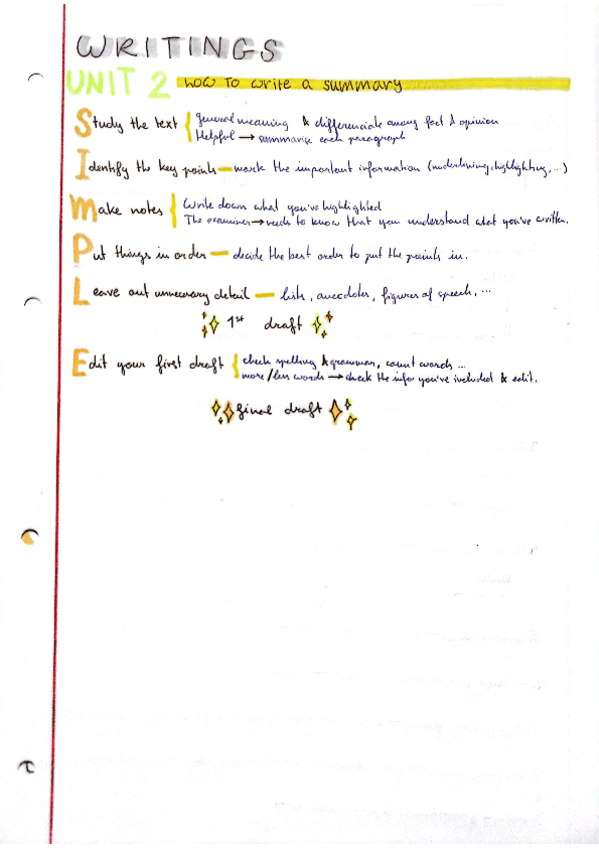 WRITINGS
UNIT 2 how to write a summary
Study the text { general meaning & differenciate among fact & opinion
Helpful → summarise each paragraph
Identify the key points — mark the important information (underlining, highlighting, ...)
Make notes { Write down what you've highlighted
The examiner → needs to know that you understand what you've written.
Put things in order — decide the best order to put the points in.
Leave out unnecessary detail — lists, anecdotes, figures of speech, ...
1st draft
Edit your first draft { check spelling & grammar, count words ...
more/less words → check the info you've included & edit.
final draft